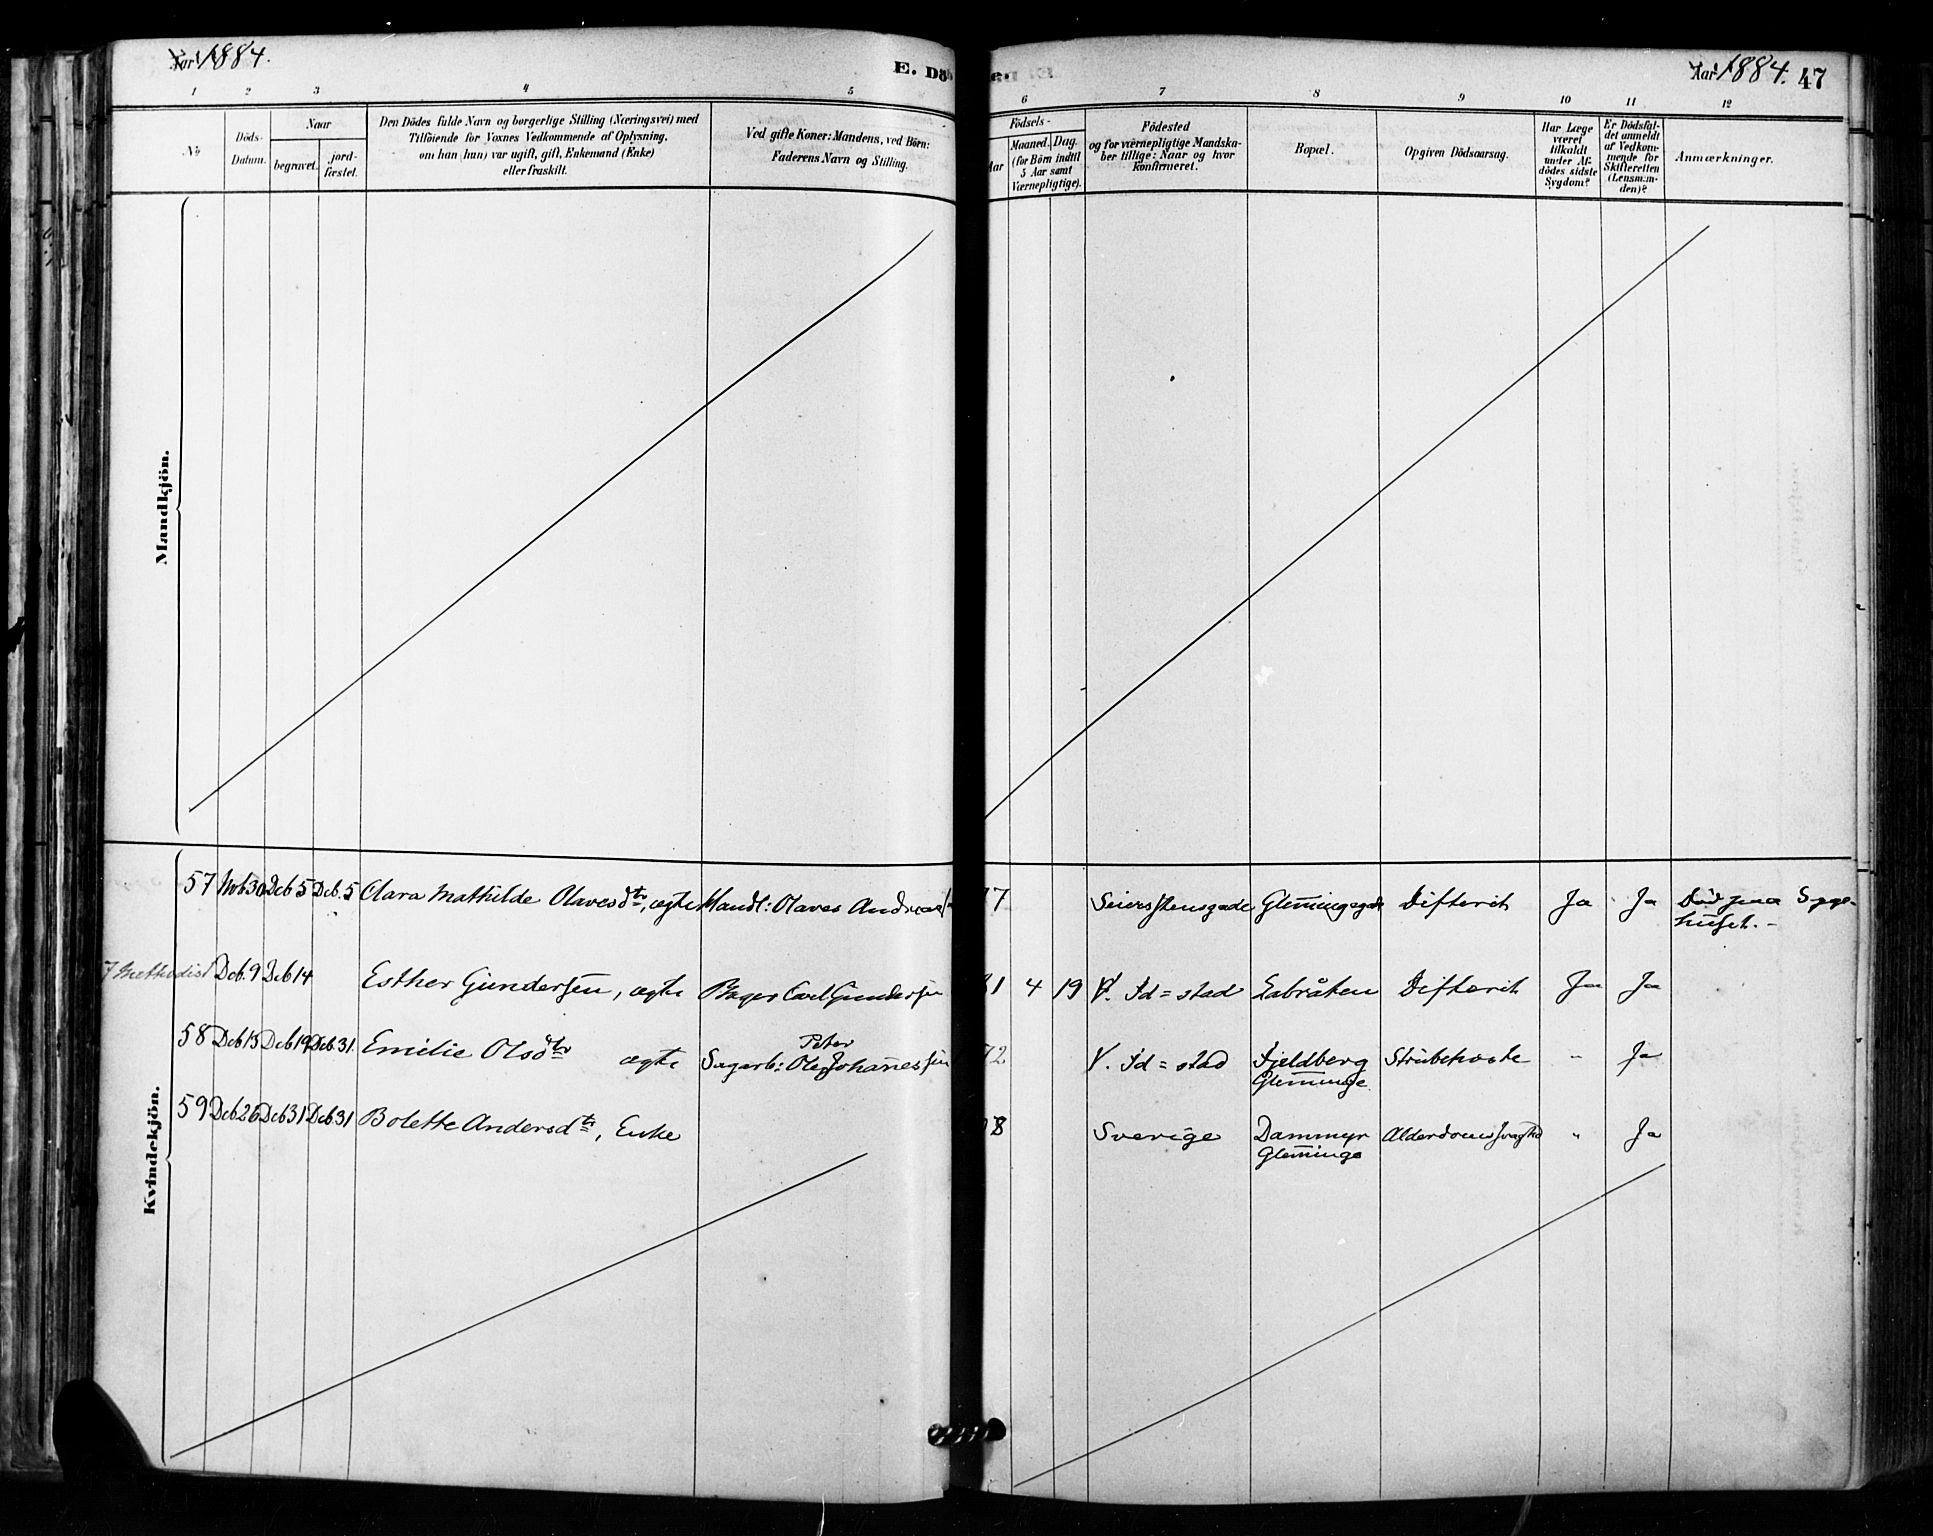 Aar 1884.
E. Dö
Aar 1884. 47
1 2 3 4 5 6 7 8 9 10 11 12
No
Döds-
Datum.
Naar
begravet.
jord-
fæstet.
Den Dödes fulde Navn og borgerlige Stilling (Næringsvei) med
Tilföiende for Voxnes Vedkommende af Oplysning,
om han (hun) var ugift, gift, Enkemand (Enke)
eller fraskilt.
Ved gifte Koner: Mandens, ved Börn:
Faderens Navn og Stilling.
Födsels-
Aar
Maaned. Dag.
(for Börn indtil
5 Aar samt
Værnepligtige).
Födested
og for værnepligtige Mandska-
ber tillige: Naar og hvor
konfirmeret.
Bopæl.
Opgiven Dödsaarsag.
Har Læge
været
tilkaldt
under Af-
dödes sidste
Sygdom?
Er Dödsfal-
det anmeldt
af Vedkom-
mende for
Skifteretten
(Lensman-
den)?
Anmærkninger.
Mandkjön.
Kvindekjön.
57 Nvb 30 Dcb 5 Dcb. 5 Clara Mathilde Olavesdtr, ægte Handl: Olaves 7 Seiersstensgade Glemmingegade Difterit Ja Ja Död paa Syge-
huset. -
7 Methodist Dcb. 9 Dcb 14 Esther Gundersen, ægte Bager Carl Gundersen 1 4 19 V. Id = stad Labråten Difterit Ja Ja
58 Dcb 13 Dcb 19 Dcb. 31. Emilie Olsdtr ægte Sagarb: Ole Peter Johannessen 72 V. Id = stad Fjeldberg Strubehoste " Ja
Glemminge
59 Dcb 26 Dcb 31 Dcb. 31 Bolette Andersdtr, Enke 8 Sverige Dammyr Alderdomssvaghed " Ja
Glemminge